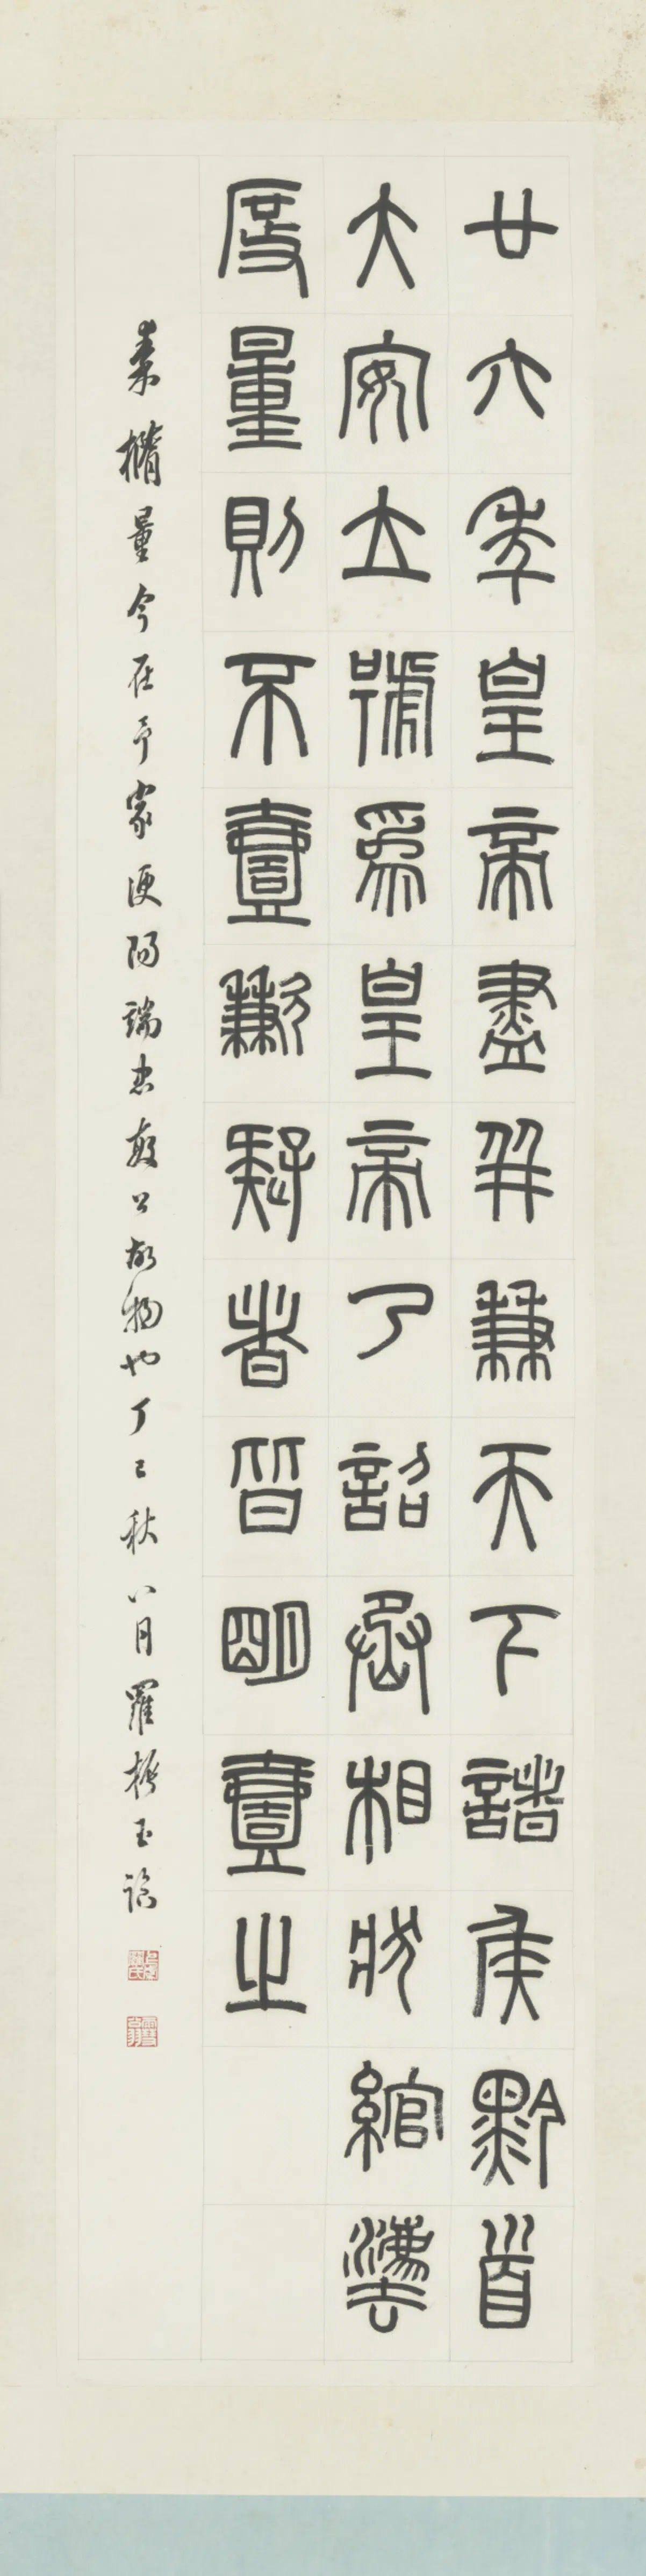 廿六年皇帝盡并兼天下諸侯黔首
大安立號為皇帝乃詔丞相狀綰灋
度量則不壹歉疑者皆明壹之
秦橢量今在予家浭陽端忠敏公故物也丁巳秋八月羅振玉臨